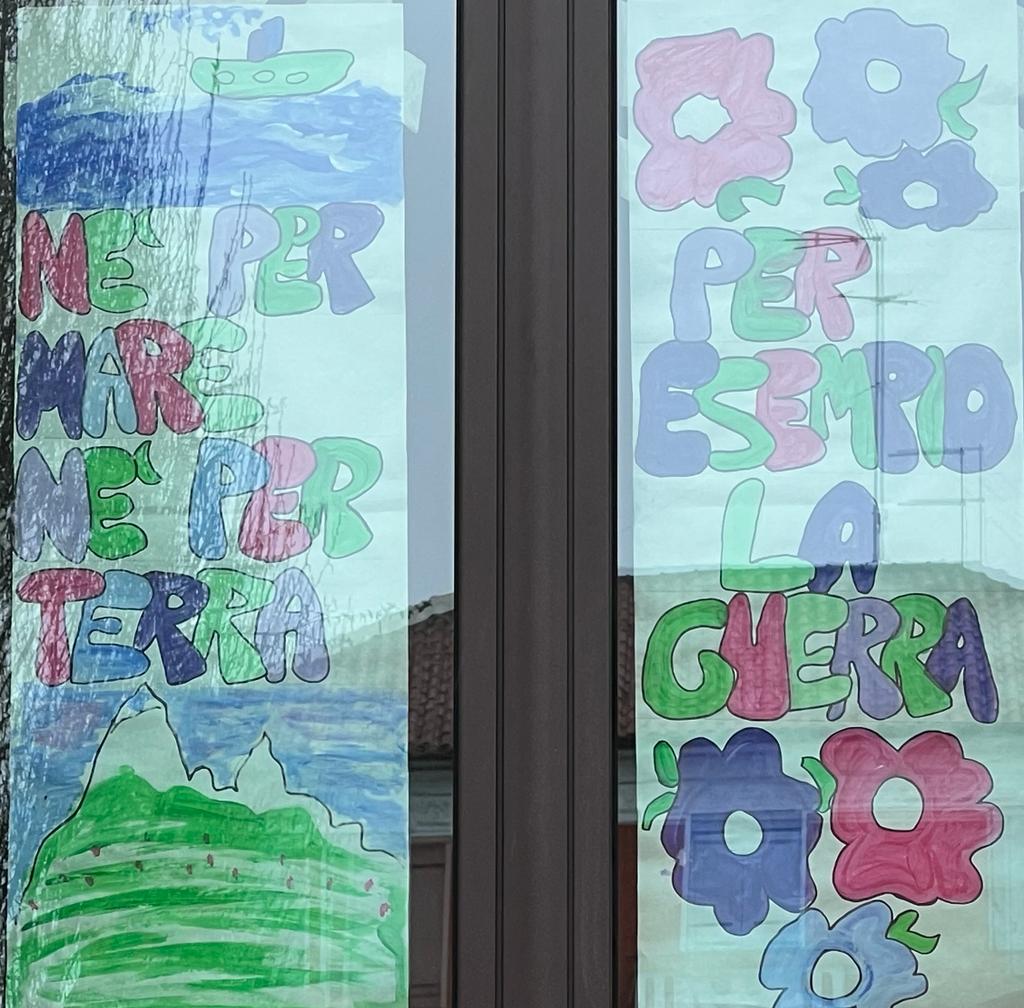 NE' PER
MARE
NE' PER
TERRA
PER
ESEMPIO
LA
GUERRA